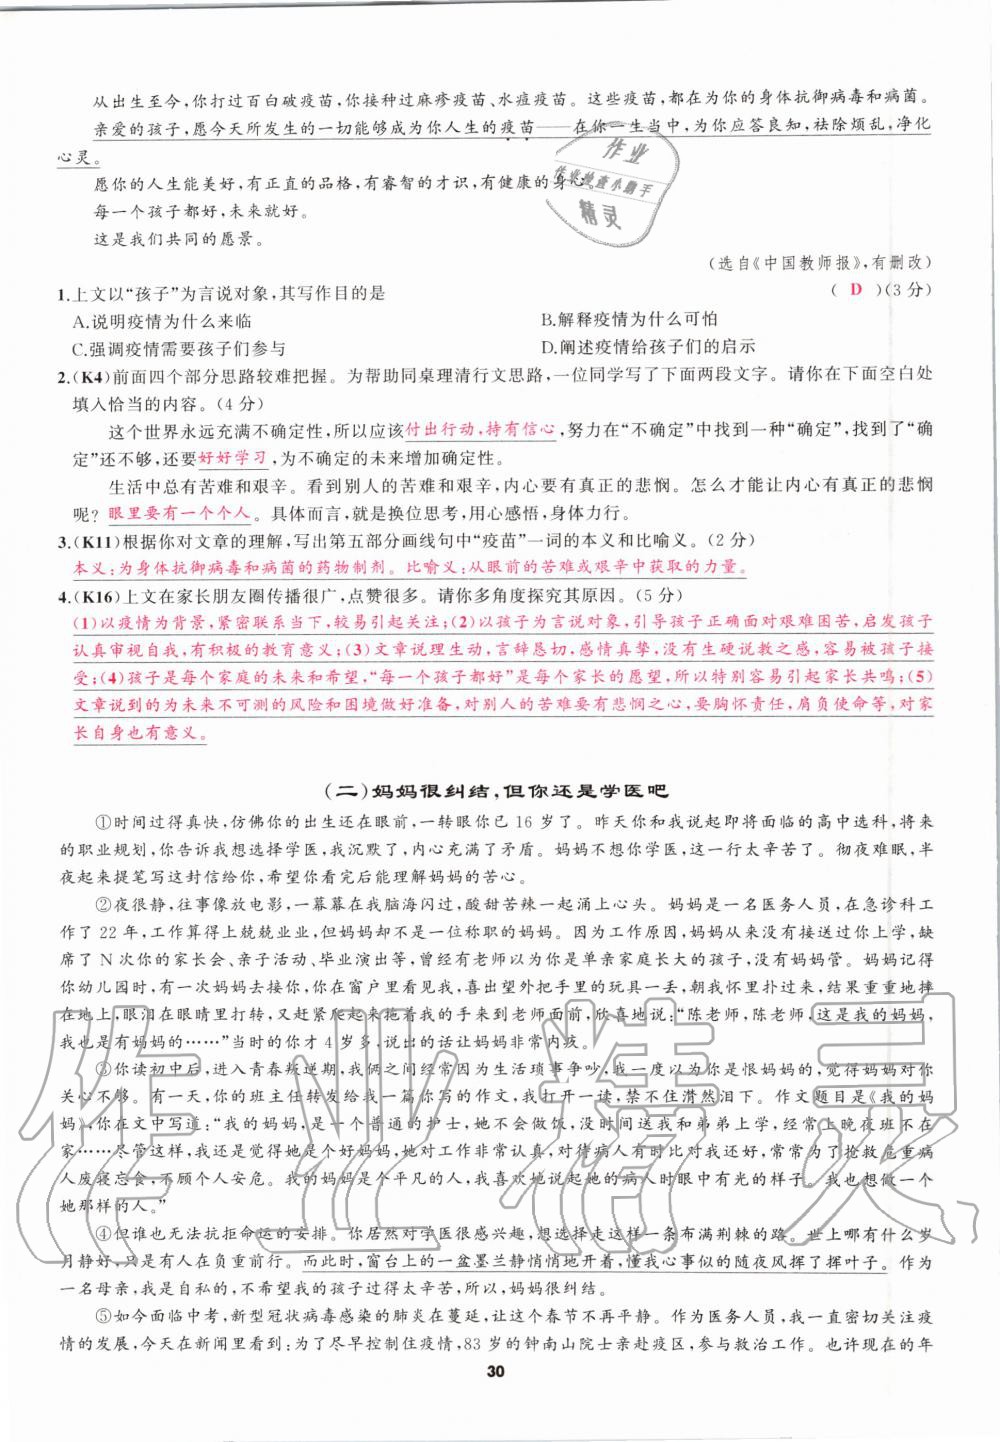 从出生至今,你打过百白破疫苗,你接种过麻疹疫苗、水痘疫苗。这些疫苗,都在为你的身体抗御病毒和病菌。
亲爱的孩子,愿今天所发生的一切能够成为你人生的疫苗——在你一生当中,为你应答良知,祛除烦乱,净化
心灵。
愿你的人生能美好,有正直的品格,有睿智的才识,有健康的身心。
每一个孩子都好,未来就好。
这是我们共同的愿景。
作业
作业检查小助手
精灵
(选自《中国教师报》,有删改)
1.上文以“孩子”为言说对象,其写作目的是 ( D )(3分)
A.说明疫情为什么来临 B.解释疫情为什么可怕
C.强调疫情需要孩子们参与 D.阐述疫情给孩子们的启示
2.(K4)前面四个部分思路较难把握。为帮助同桌理清行文思路,一位同学写了下面两段文字。请你在下面空白处
填入恰当的内容。(4分)
这个世界永远充满不确定性,所以应该付出行动,持有信心,努力在“不确定”中找到一种“确定”,找到了“确
定”还不够,还要好好学习,为不确定的未来增加确定性。
生活中总有苦难和艰辛。看到别人的苦难和艰辛,内心要有真正的悲悯。怎么才能让内心有真正的悲悯
呢?眼里要有一个个人。具体而言,就是换位思考,用心感悟,身体力行。
3.(K11)根据你对文章的理解,写出第五部分画线句中“疫苗”一词的本义和比喻义。(2分)
本义:为身体抗御病毒和病菌的药物制剂。比喻义:从眼前的苦难或艰辛中获取的力量。
4.(K16)上文在家长朋友圈传播很广,点赞很多。请你多角度探究其原因。(5分)
(1)以疫情为背景,紧密联系当下,较易引起关注;(2)以孩子为言说对象,引导孩子正确面对艰难困苦,启发孩子
认真审视自我,有积极的教育意义;(3)文章说理生动,言辞恳切,感情真挚,没有生硬说教之感,容易被孩子接
受;(4)孩子是每个家庭的未来和希望,“每一个孩子都好”是每个家长的愿望,所以特别容易引起家长共鸣;(5)
文章说到的为未来不可测的风险和困境做好准备,对别人的苦难要有悲悯之心,要胸怀责任,肩负使命等,对家
长自身也有意义。
(二)妈妈很纠结,但你还是学医吧
①时间过得真快,仿佛你的出生还在眼前,一转眼你已16岁了。昨天你和我说起即将面临的高中选科,将来
的职业规划,你告诉我想选择学医,我沉默了,内心充满了矛盾。妈妈不想你学医,这一行太辛苦了。彻夜难眠,半
夜起来提笔写这封信给你,希望你看完后能理解妈妈的苦心。
②夜很静,往事像放电影,一幕幕在我脑海闪过,酸甜苦辣一起涌上心头。妈妈是一名医务人员,在急诊科工
作了22年,工作算得上兢兢业业,但妈妈却不是一位称职的妈妈。因为工作原因,妈妈从来没有接送过你上学,缺
席了N次你的家长会、亲子活动、毕业演出等,曾经有老师以为你是单亲家庭长大的孩子,没有妈妈管。妈妈记得
你幼儿园时,有一次妈妈去接你,你在窗户里看见我,兴奋地把手里的玩具一丢,朝我怀里扑过来,结果重重地摔
在地上,眼泪在眼睛里打转,又赶紧爬起来拖着我的手来到老师面前,欣喜地说:“陈老师,陈老师,这是我的妈妈,
我也是有妈妈的……”当时的你才4岁多,说出的话让妈妈非常内疚。
③你读初中后,进入青春叛逆期,我俩之间经常因为生活琐事争吵,我一度以为你是恨妈妈的,觉得妈妈对你
关心不够。有一天,你的班主任转发给我一篇你写的作文,我打开一读,禁不住潸然泪下。作文题目是《我的妈
妈》,你在文中写道:“我的妈妈,是一个普通的护士,她不会做饭,没时间送我和弟弟上学,经常上晚夜班不在
家……尽管这样,我还是觉得她是个好妈妈,她对工作非常认真,对待病人有时比对我还好,常常为了抢救危重病
人废寝忘食,不顾个人安危。我的妈妈是个平凡的人,我喜欢她说起她的病人时眼中有光的样子。我也想做一个
她那样的人。”
④但谁也无法抗拒命运的安排。你居然对学医很感兴趣,想选择走这样一条布满荆棘的路。世上哪有什么岁
月静好,只是有人在负重前行。而此时,窗台上的一盆墨兰静悄悄地开着,懂我心事似的随夜风挥了挥叶子。作为
一名母亲,我是自私的,不希望我的孩子过得太辛苦,所以,妈妈很纠结。
⑤如今面临中考,新型冠状病毒感染的肺炎在蔓延,让这个春节不再平静。作为医务人员,妈妈时刻关注疫
情的发展,今天在新闻里看到:为了尽早控制住疫情,83岁的钟南山院士亲赴疫区,参与救治工作。也许现在的年
30
作业精灵